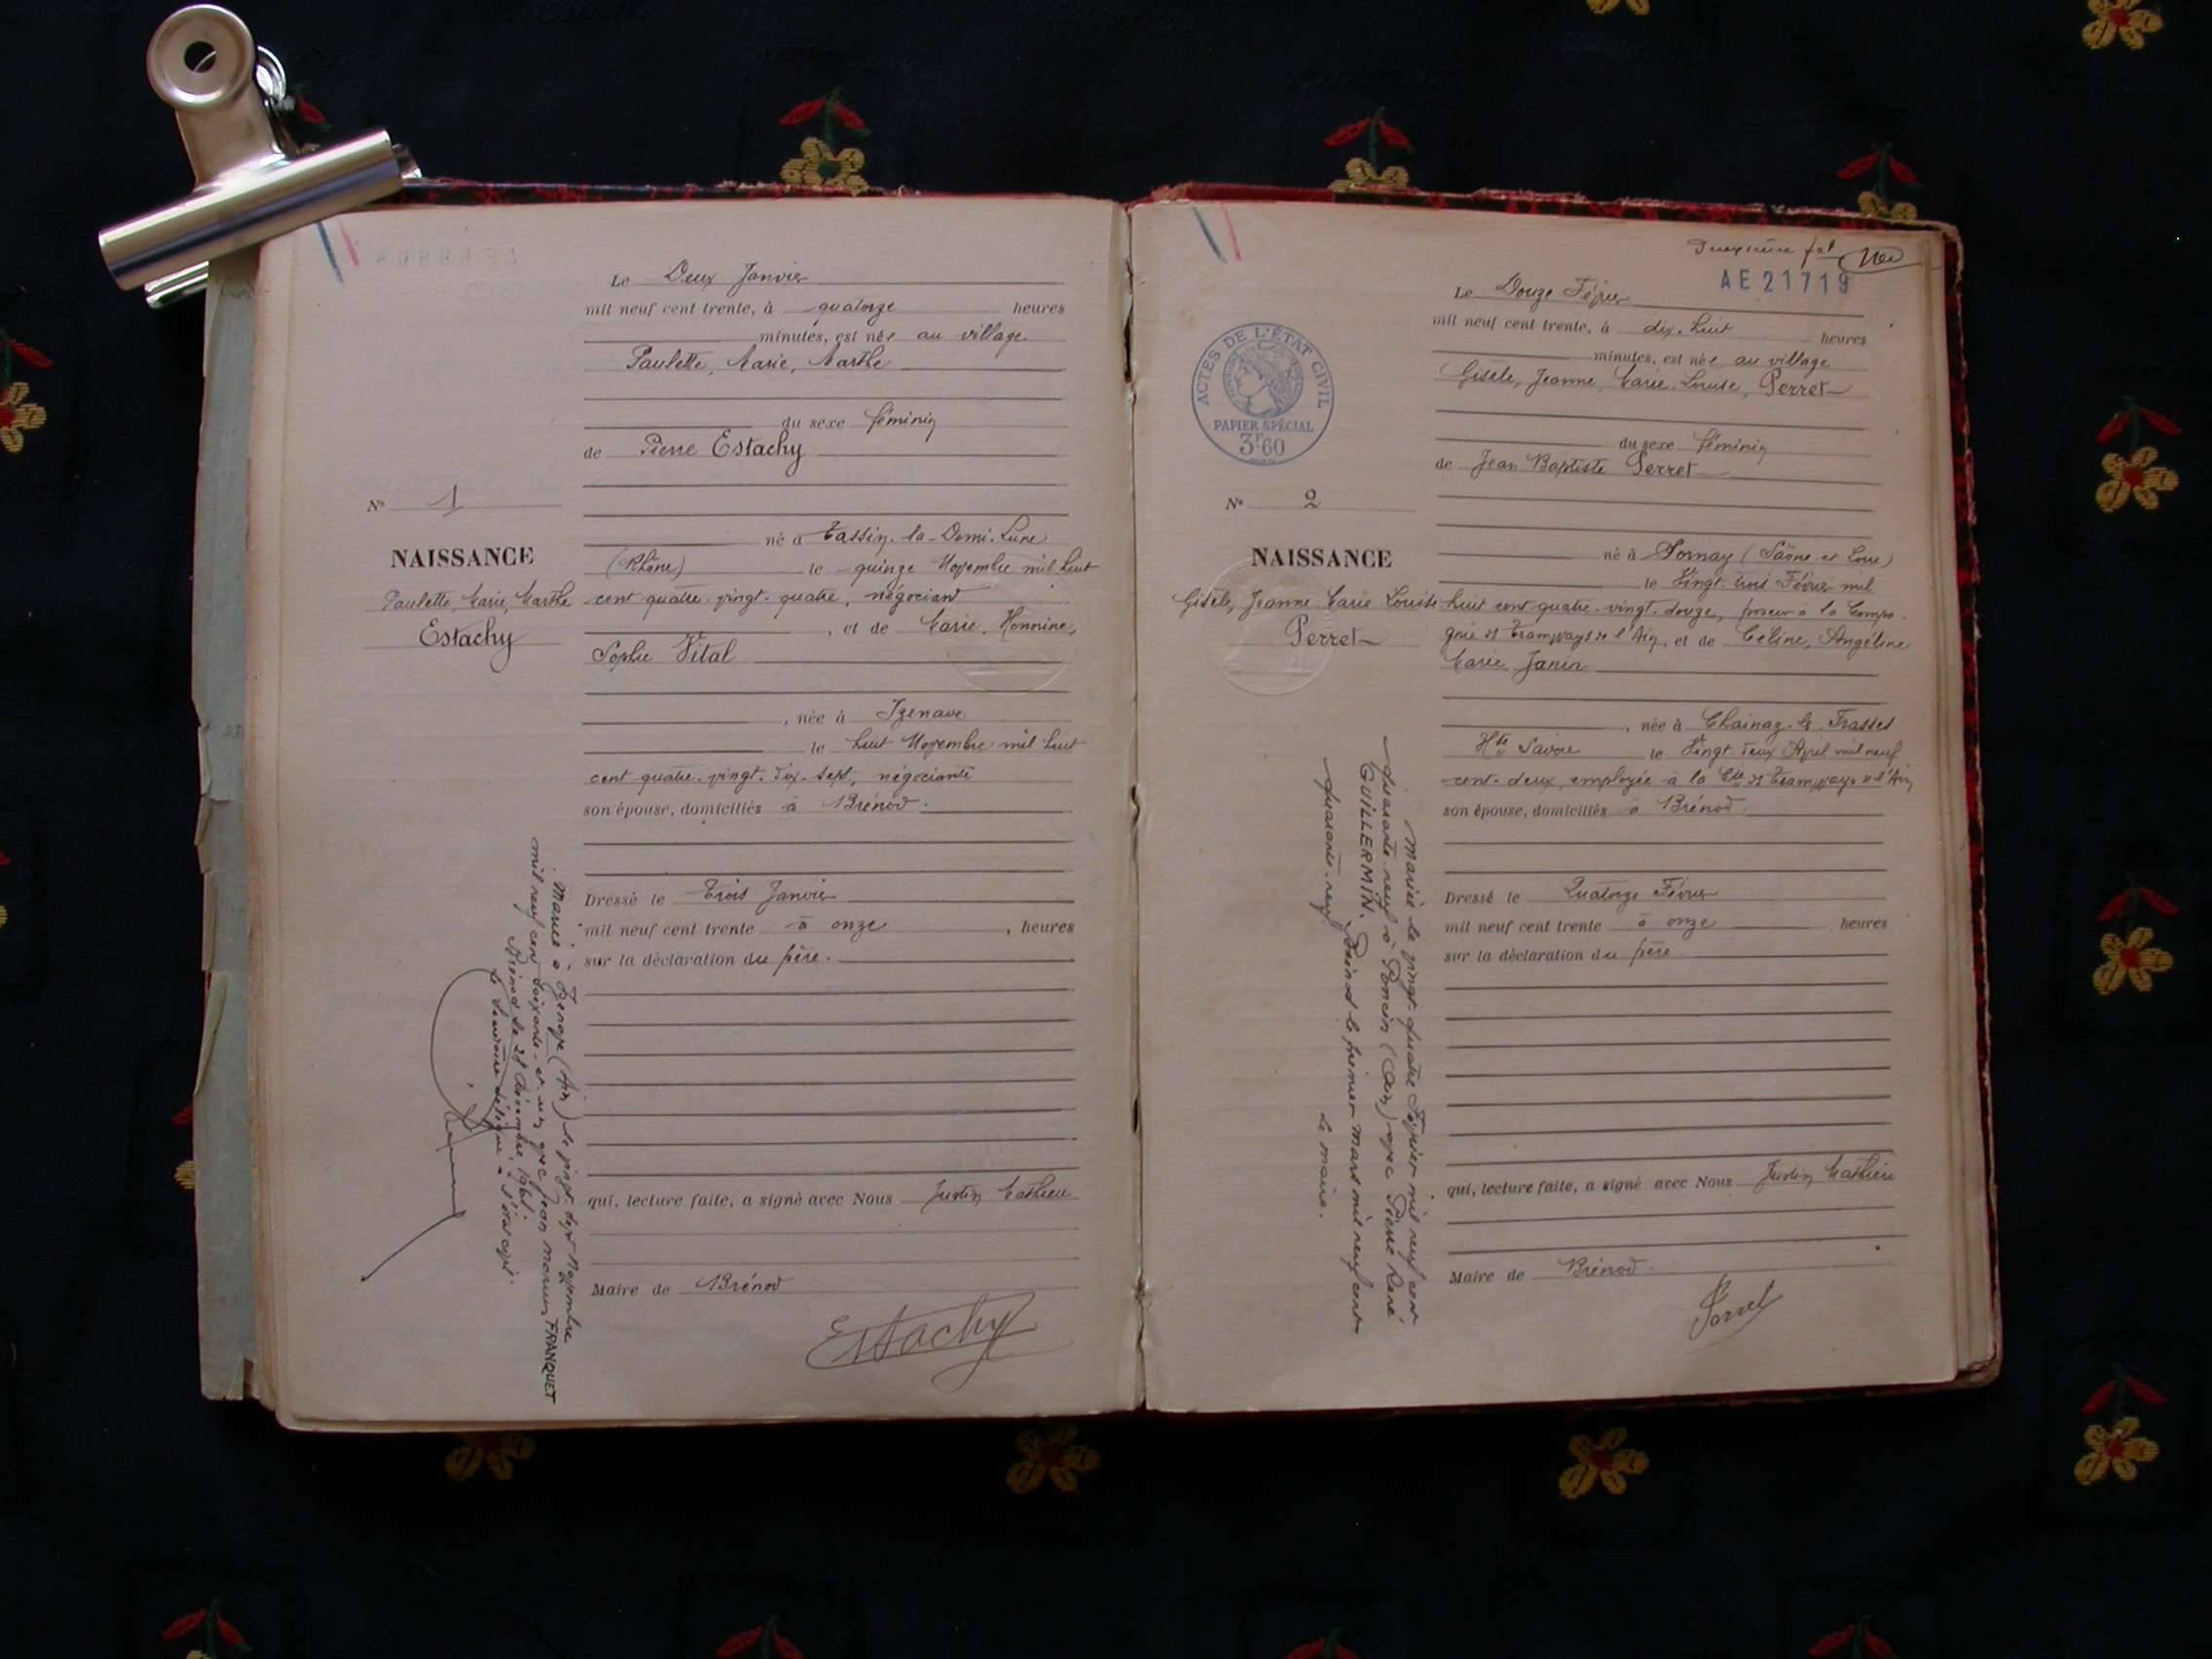 Le Deux Janvier
mil neuf cent trente, à quatorze heures
minutes, est née au village
Paulette, Marie, Marthe
du sexe féminin
de Pierre Estachy
né à Tassin-la-Demi-Lune
(Rhône) le quinze Novembre mil huit
cent quatre-vingt-quatre, négociant
, et de Marie, Honorine,
Sophie Vital
, née à Izenave
le huit Novembre mil huit
cent quatre-vingt-dix-sept, négociante
son épouse, domiciliés à Brénod.
Dressé le Trois Janvier
mil neuf cent trente à onze, heures
sur la déclaration du père.
qui, lecture faite, a signé avec Nous Justin Mathieu
Maire de Brénod
Estachy
N° 1
NAISSANCE
Paulette, Marie, Marthe
Estachy
Mariée à Izenave (Ain) le vingt-sept Novembre
mil neuf cent soixante-et-un avec Jean Marius FRANQUET
Brénod le 28 décembre 1961.
Le Secrétaire délégué à l'état civil.
Deuxième
AE 21719
Le Douze Février
mil neuf cent trente, à dix-huit heures
minutes, est née au village
Gisèle, Jeanne, Marie-Louise, Perret
du sexe féminin
de Jean Baptiste Perret
né à Sornay (Saône-et-Loire)
le Vingt-trois Février mil
huit cent quatre-vingt-douze, poseur à la Compa-
gnie des Tramways de l'Ain, et de Céline, Angéline
Marie Janin
, née à Chainaz-les-Frasses
Hte Savoie le Vingt-deux Avril mil neuf
cent-deux, employée à la Cie des Tramways de l'Ain
son épouse, domiciliés à Brénod.
Dressé le Quatorze Février
mil neuf cent trente à onze heures
sur la déclaration du père
qui, lecture faite, a signé avec Nous Justin Mathieu
Maire de Brénod.
Perret
ACTES DE L'ÉTAT CIVIL
PAPIER SPÉCIAL
3F60
N° 2
NAISSANCE
Gisèle, Jeanne Marie Louise
Perret
Mariée le vingt-quatre Février mil neuf cent
quarante-neuf à Poncin (Ain) avec Pierre René
GUILLERMIN. Brénod le premier mars mil neuf cent
quarante-neuf
Le maire.